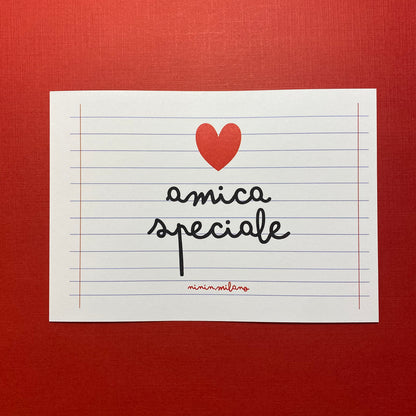 amica
speciale
nininmilano